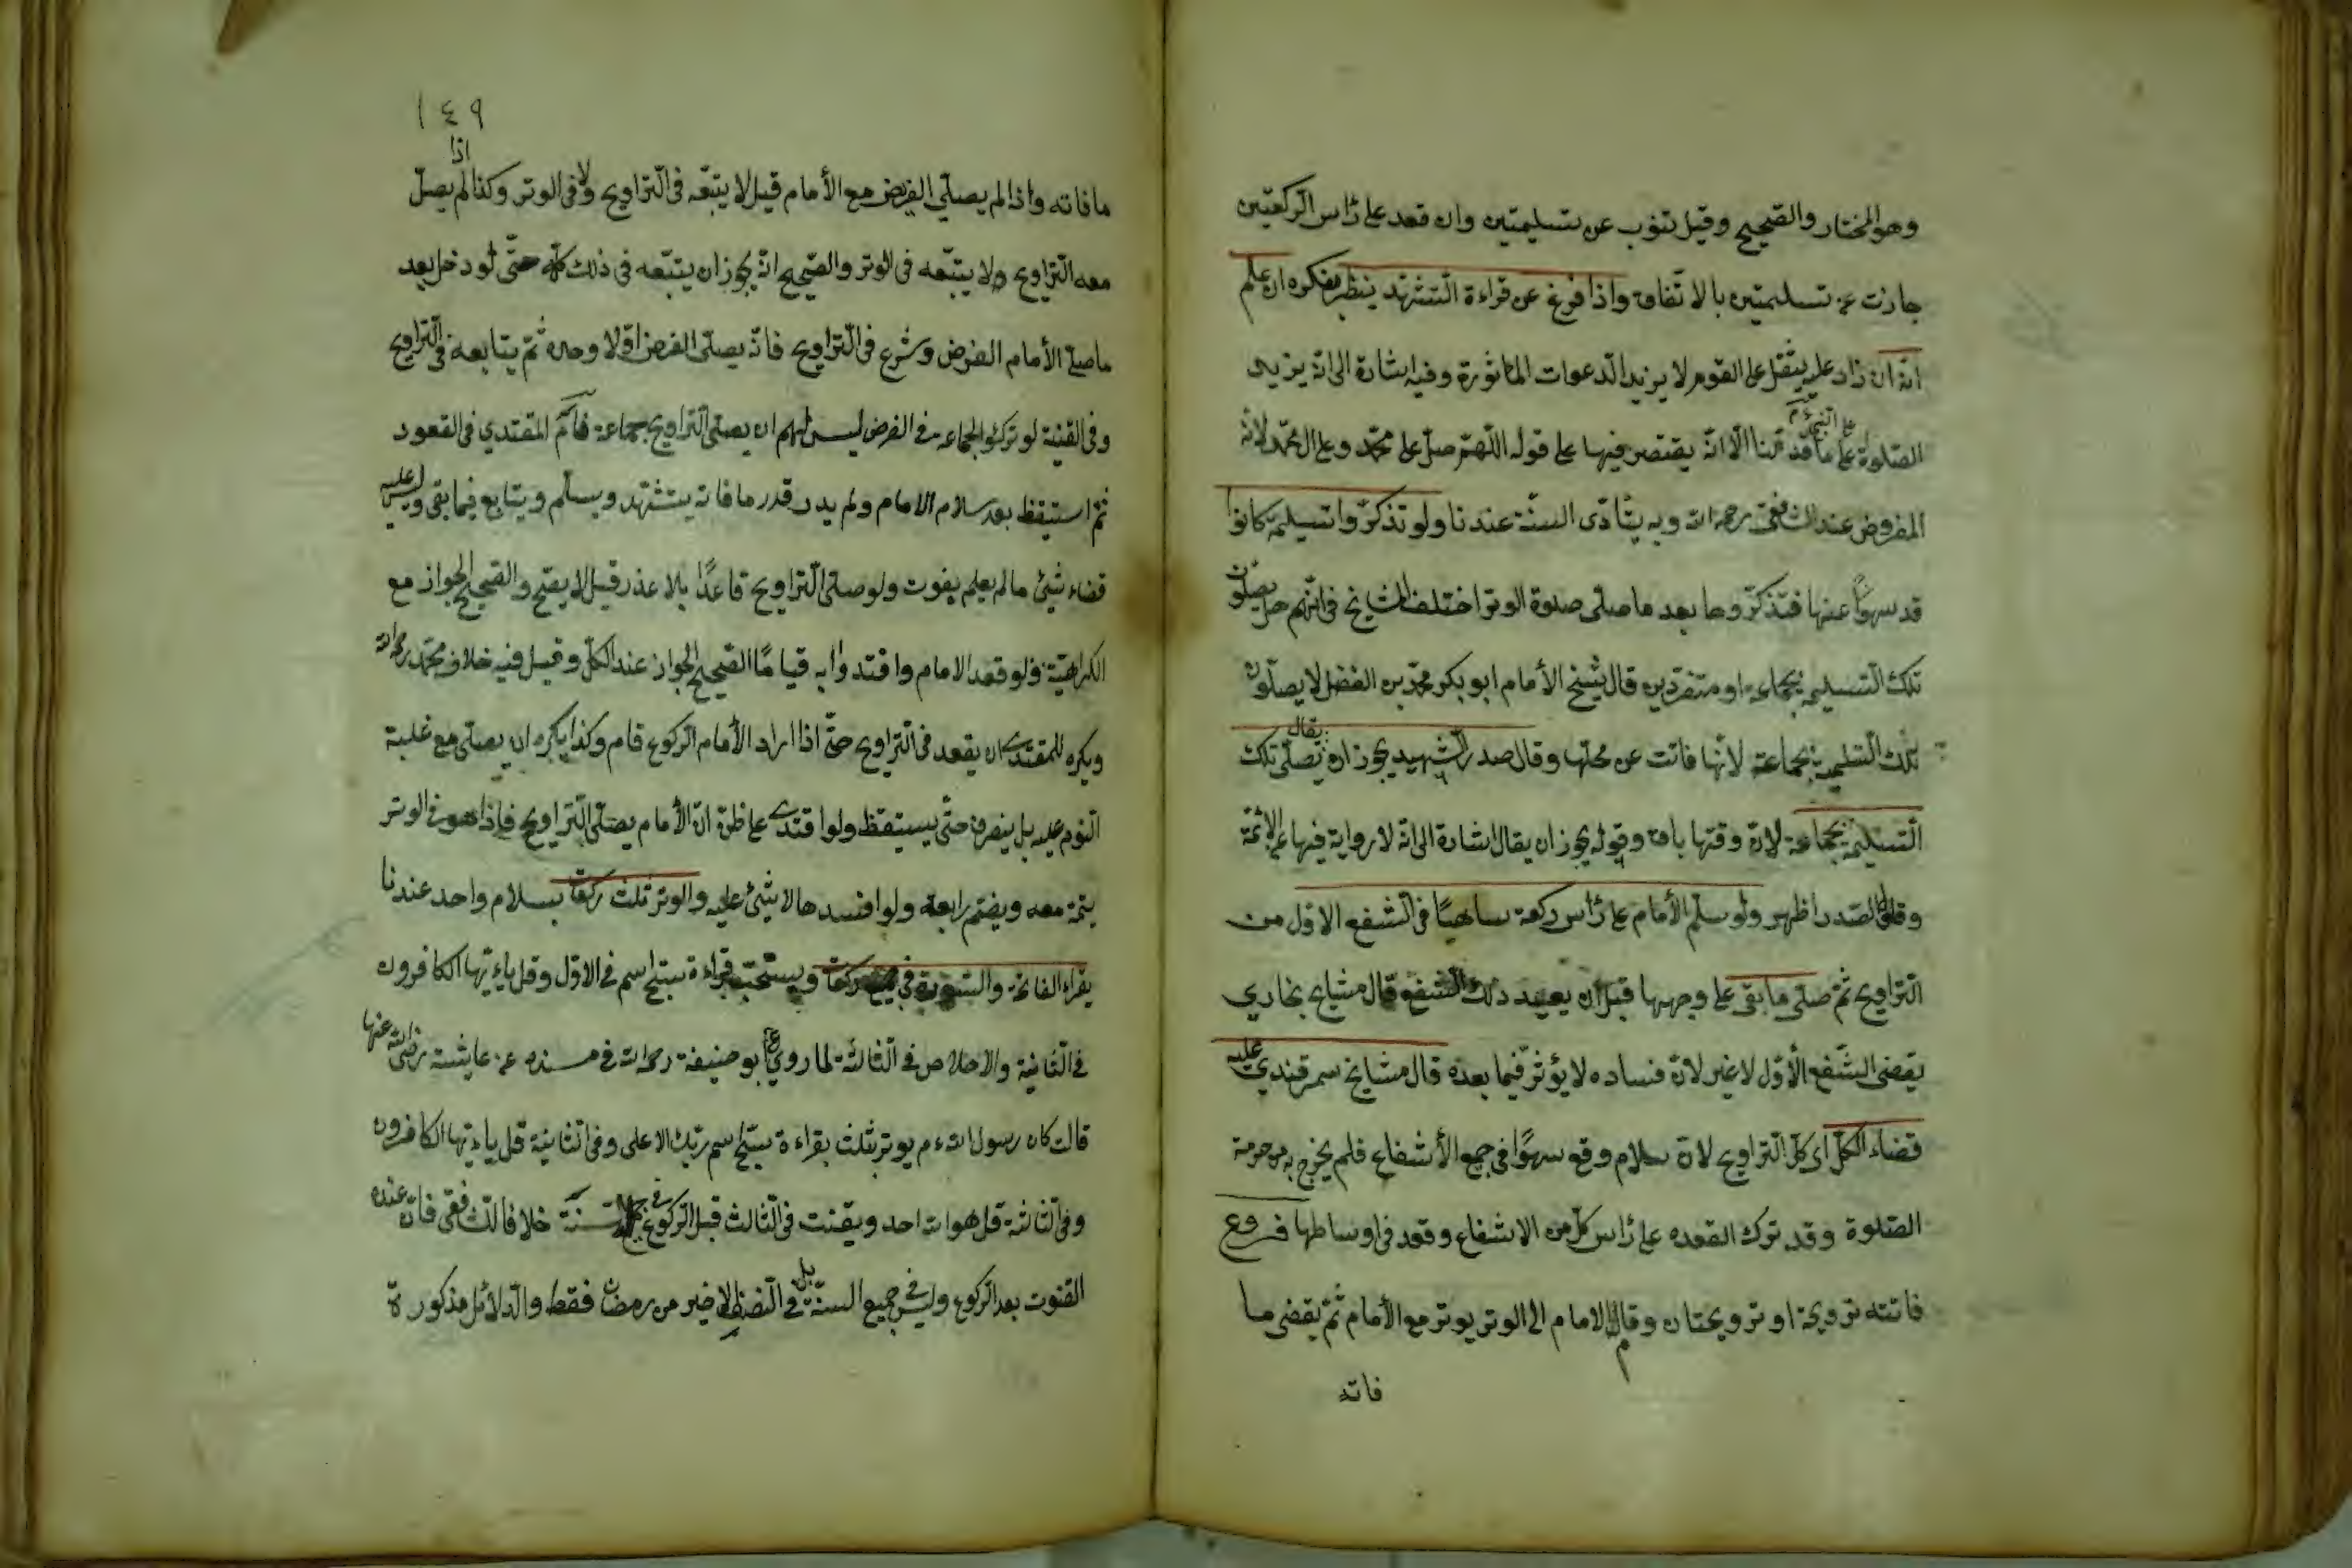 وهو المختار والصحيح وقيل تنوب عن تسليمتين وان قعد على رأس الركعتين
جازت عن تسليمتين بالاتفاق واذا فرغ عن قراءة التشهد ينظر بفكره ان علم
انه ان زاد عليه يثقل على القوم لا يزيد الدعوات المأثورة وفيه اشارة الى انه يزيد
الصلوة على النبي عم على ما قدمنا الا انه يقتصر فيها على قوله اللهم صل على محمد وعلى ال محمد لانه
المفروض عند الشافعي رحمه الله وبه يتادى السنة عندنا ولو تذكروا تسليمة كانوا
قد سهوا عنها فتذكروها بعد ما صلى صلوة الوتر اختلف المشايخ في انهم هل يصلون
تلك التسليمة بجماعة او متفردين قال شيخ الأمام ابو بكر محمد بن الفضل لا يصلون
تلك التسليمة بجماعة لانها فاتت عن محلها وقال صدر الشهيد يجوز ان يقال تصلى تلك
التسليمة بجماعة لان وقتها باق وقوله يجوز ان يقال اشارة الى انه لا رواية فيها عن الائمة
وقول الصدر اظهر ولو سلم الأمام على رأس ركعة ساهيا في الشفع الاول من
التراويح ثم صلى ما بقى على وجهها قبل ان يعيد ذلك الشفع قال مشايخ بخارى
يقضى الشفع الأول لا غير لان فساده لا يؤثر فيما بعده قال مشايخ سمرقندى عليه
قضاء الكل اى كل التراويح لان سلام وقع سهوا في جميع الأشفاع فلم يخرج به من حرمة
الصلوة وقد ترك القعده على رأس كل من الاشفاع وقعد في اوساطها فروع
فاتته ترويحة او ترويحتان وقام الامام الى الوتر يوتر مع الأمام ثم يقضى ما
فاته
١٤٩
ما فاته واذا لم يصلى الفرض مع الأمام قيل لا يتبعه في التراويح ولا في الوتر وكذا اذا لم يصل
معه التراويح ولا يتبعه في الوتر والصحيح انه يجوز ان يتبعه في ذلك كله حتى لو دخل بعد
ما صلى الأمام الفرض وشرع في التراويح فانه يصلى الفرض اولا وحده ثم يتابعه في التراويح
وفي القنية لو تركوا الجماعة في الفرض ليس لهم ان يصلى التراويح بجماعة المقتدي في القعود
ثم استيقظ بعد سلام الامام ولم يدر قدر ما فاته يتشهد ويسلم ويتابع فيما بقى وليس عليه
قضاء شيئ ما لم يعلم يفوت ولو صلى التراويح قاعدا بلا عذر قيل لا يصح والصحيح الجواز مع
الكراهية ولو قعد الامام واقتدوا به قياما الصحيح الجواز عند الكل وقيل فيه خلاف محمد رحمه الله
ويكره للمقتدي ان يقعد في التراويح حتى اذا اراد الأمام الركوع قام وكذا يكره ان يصلى مع غلبة
النوم عليه بل ينصرف حتى يستيقظ ولو اقتدى على ظن ان الأمام يصلى التراويح فاذا هو في الوتر
يتمه معه ويضم رابعة ولو افسدها لا شيئ عليه والوتر ثلث ركعات بسلام واحد عندنا
يقراء الفاتحة والسورة في جميع ركعات ويستحب قراءة سبح اسم في الاول وقل ياءيها الكافرون
في الثانية والاخلاص في الثالثة لما روي ابو حنيفة رحمه الله في مسنده عن عايشة رضى الله عنها
قالت كان رسول الله ءم يوتر بثلث بقراءة سبح اسم ربك الاعلى وفي الثانية قل ياءيها الكافرون
وفي الثالثة قل هو الله احد ويقنت في الثالث قبل الركوع في جميع السنة خلافا للشافعى فان عنده
القنوت بعد الركوع وليس في جميع السنة بل في النصف الاخير من رمضان فقط والدلائل مذكورة